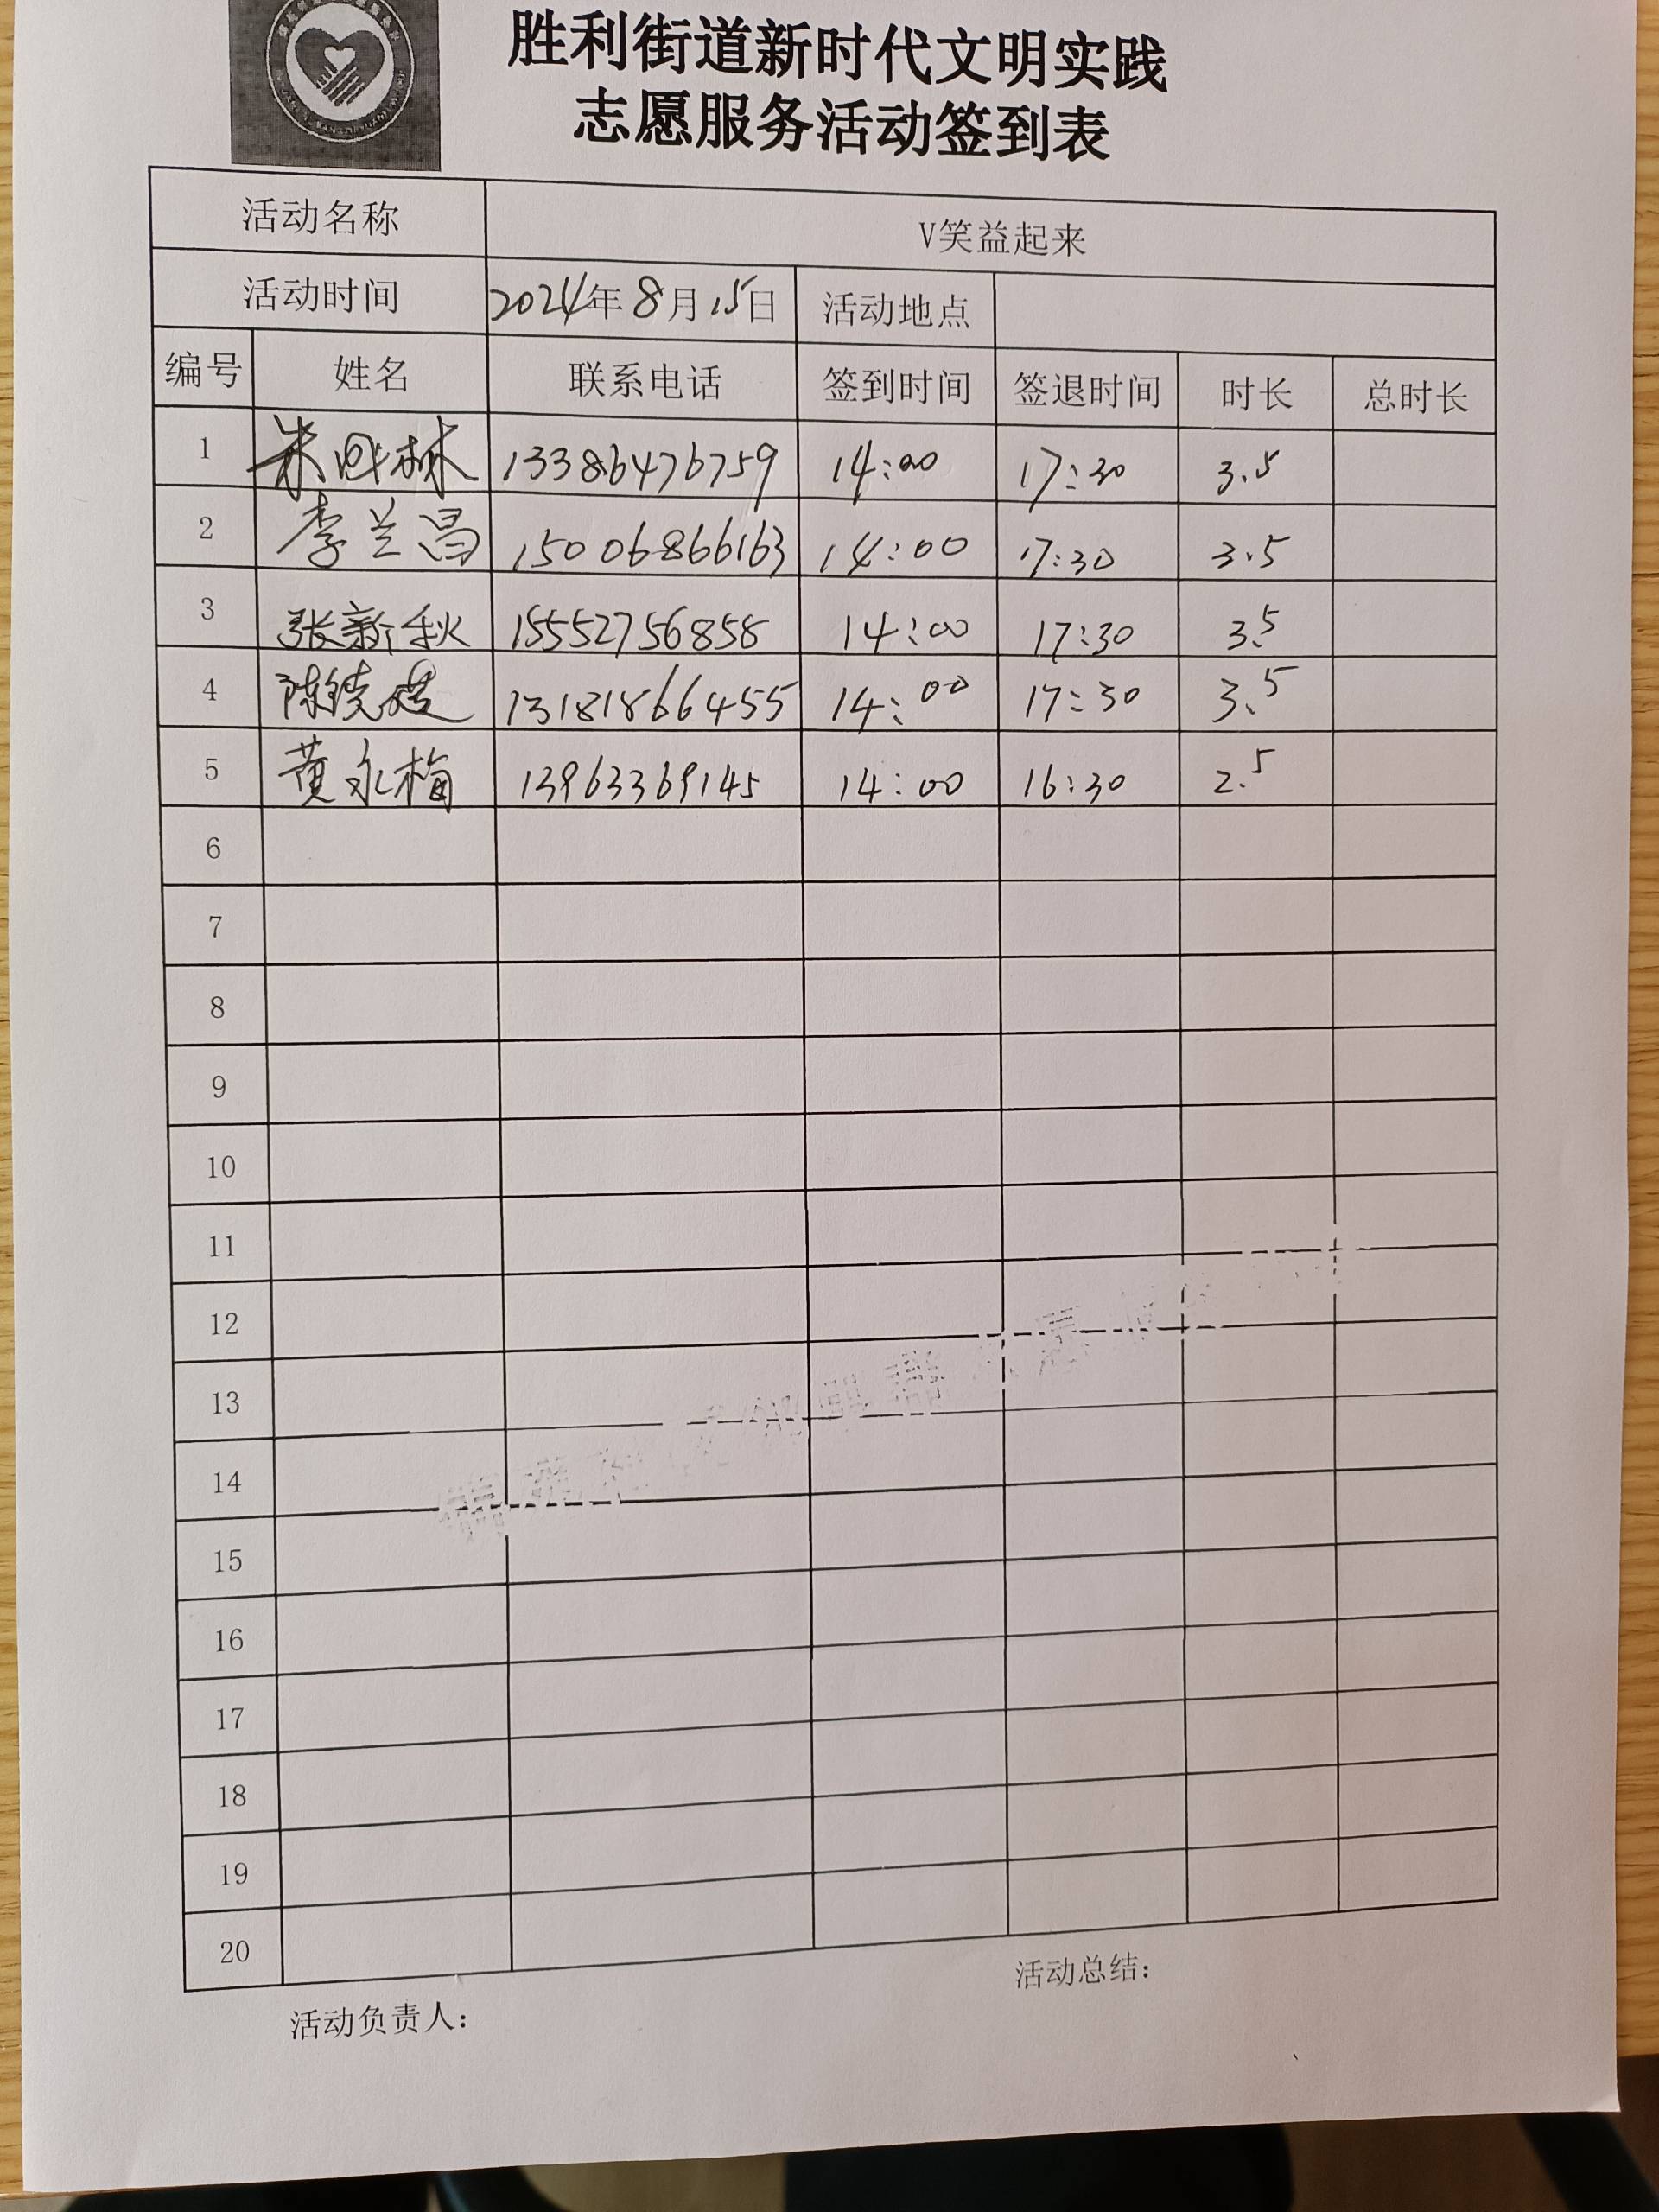 胜利街道新时代文明实践
志愿服务活动签到表
活动名称 V笑益起来
活动时间 2024年8月15日 活动地点
编号 姓名 联系电话 签到时间 签退时间 时长 总时长
1 13386476759 14:00 17:30 3.5
2 李兰昌 15006866163 14:00 17:30 3.5
3 张新秋 15552756858 14:00 17:30 3.5
4 13181866455 14:00 17:30 3.5
5 黄永梅 13963369145 14:00 16:30 2.5
6
7
8
9
10
11
12
13
14
15
16
17
18
19
20
活动负责人： 活动总结：